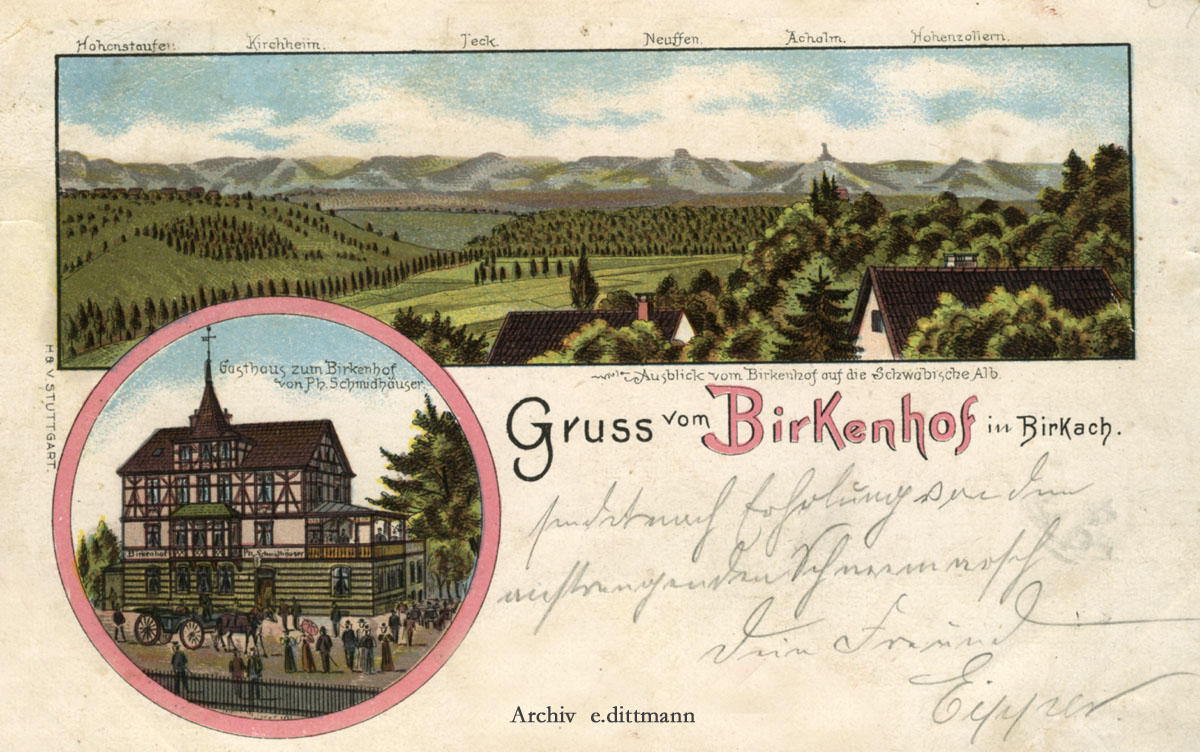 Hohenstaufen. Kirchheim. Teck. Neuffen. Achalm. Hohenzollern.
Ausblick vom Birkenhof auf die Schwäbische Alb.
Gasthaus zum Birkenhof
von Ph. Schmidhäuser.
H & V. STUTTGART.
Gruss vom Birkenhof in Birkach.
Birkenhof Ph. Schmidhäuser
sendet nach Erholung von dem
anstrengenden
Dein Freund
Archiv e.dittmann